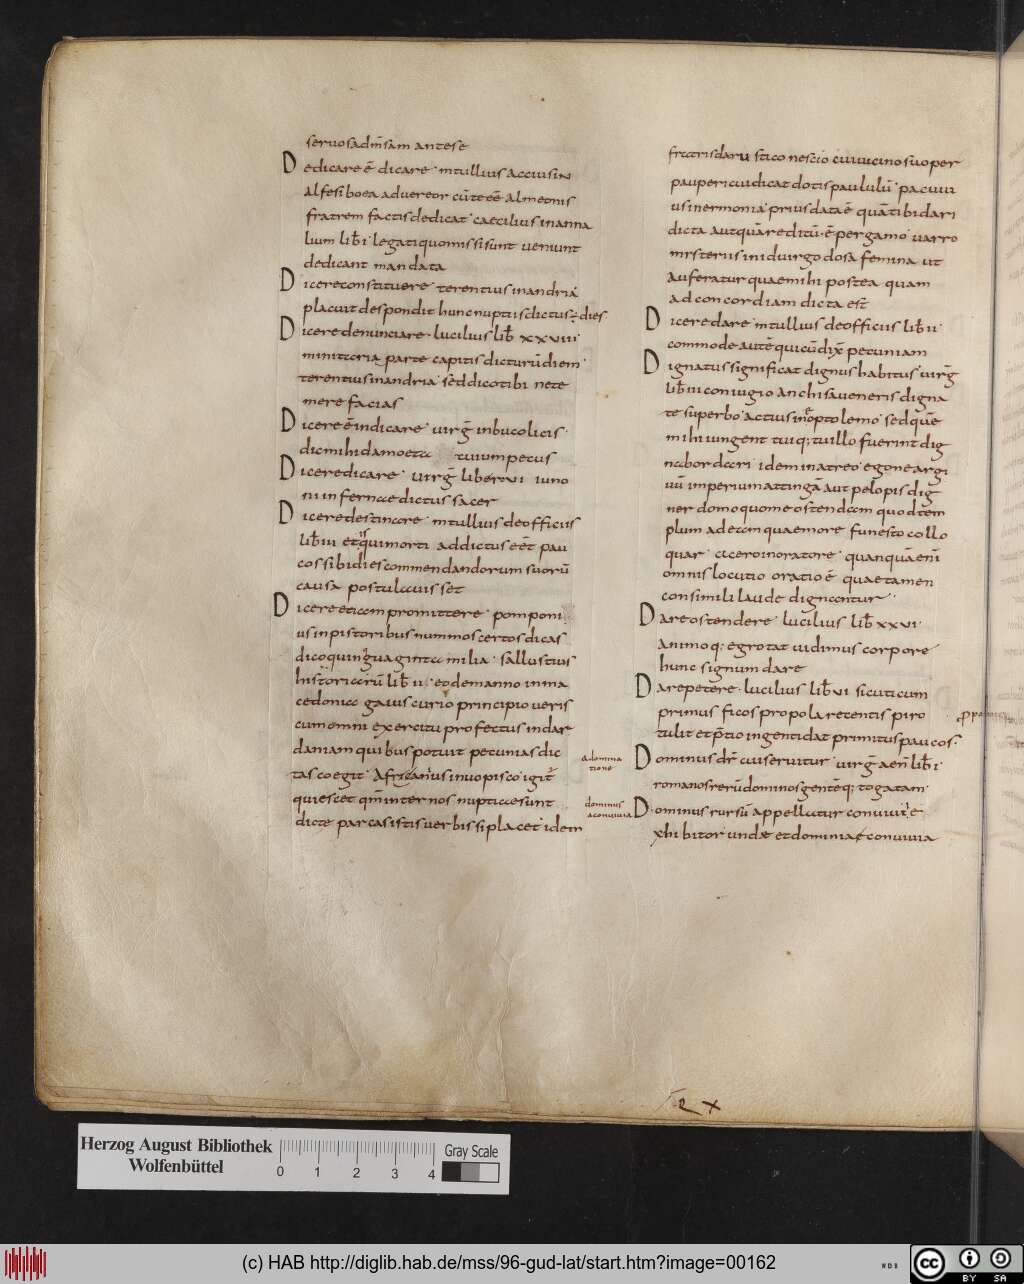 seruos admsam antese
Dedicare ē dicare mtullius accius in
alfesiboea aduereor cūteeē almeonis
fratrem factis dedicat caecilius inanna
lium lib i legati quomissi sunt ueniunt
dedicant mandata
Dicere constituere terentius inandria
placuit despondit hunc nuptiis dictus÷dies
Dicere denunciare lucilius lib xxviii
minitaria parte capitis dicturū diem
terentius inandria sed dico tibi nete
mere facias
Dicere ē indicare uirg inbucolicis
dic mihi damoeta cuium pecus
Dicere dicare uirg liber vi iuno
ni infernae dictus sacer
Dicere destinare mtullius deofficiis
lib iii et qui morti addictus eēt pau
cos sibi dies commendandorum suorū
causa postulauisset
Dicere etiam promittere pomponi
us inpistoribus nummos certos dicas
dico quinquaginta milia sallustius
historiarū lib ii eodemanno inma
cedonia gaius curio principio ueris
cum omni exercitu profectus indar
daniam quibus potuit pecunias dic
tas coegit Africanus inuopisco igit
quiescet qm inter nos nuptiae sunt
dicte parcas istis uerbis si placet idem
fratris daru stico nescio cui uicino suo per
pauperi cui dicat dotis paululū pacuui
us inermonia prius data ē quā tibi dari
dicta aut quā reditū·ē pergamo uarro
mrsterus inid uirgo dosa femina ut
auferatur quae mihi postea quam
ad concordiam dicta est
Dicere dare mtullius deofficiis lib ii
commode autē quicū dix pecuniam
Dignatus significat dignus habitus uirg
lib iii coniugio anchisa ueneris digna
te superbo accius in optolemo sed quē
mihi iungent cui q; tu illo fuerint dig
nabor dari idem inatreo egone argi
uū imperium attingā aut pelopis dig
ner domo quome ostendam quod tem
plum adeam quae more funesto collo
quar cicero inoratore quanquā enī
omnis locutio oratio ē quae tamen
consimili laude dignantur
Dare ostendere lucilius lib xxvi
animo q; egrotat uidimus corpore
hunc signum dare
Dare petere lucilius lib vi sicuti cum
primus ficos propola recentis pro
tulit et ptio ingenti dat primitus paucos
adomina
tione
Dominus dr cui seruitur uirg aen lib i
romanos rerū dominos gentē q; togatam
dominus
aconuiuia
Dominus rursū appellatur conuiuii e
xhibitor unde et dominia e conuiuia
(c) HAB http://diglib.hab.de/mss/96-gud-lat/start.htm?image=00162
Herzog August Bibliothek
Wolfenbüttel
0 1 2 3 4
Gray Scale
CC BY SA